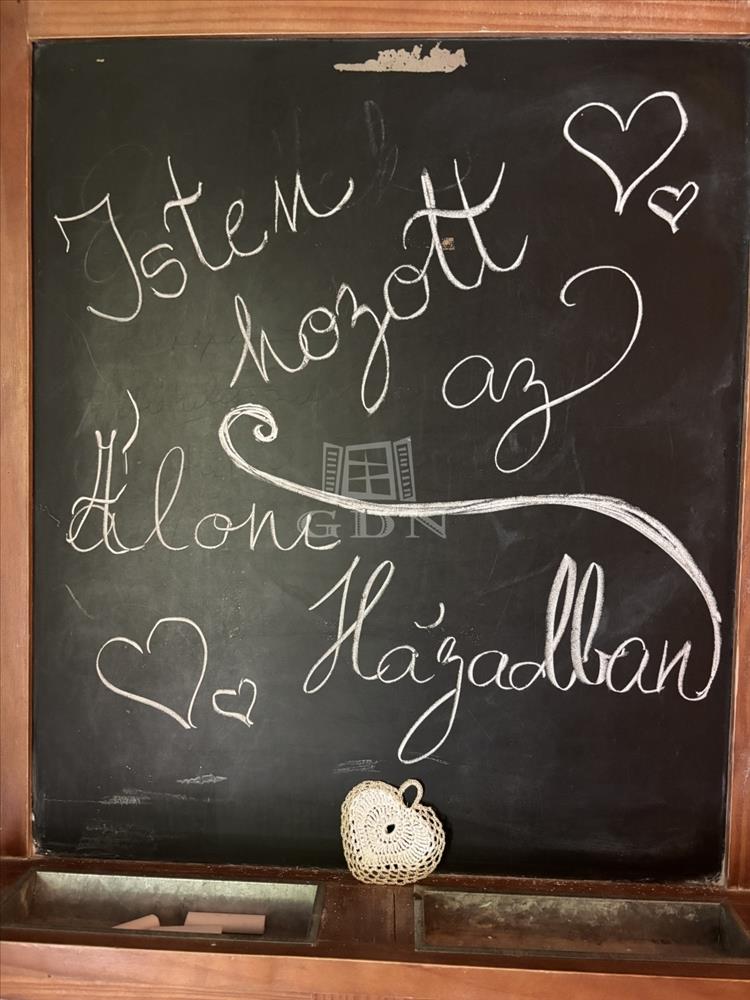 Isten
hozott
az
Álom
GDN
Házadban